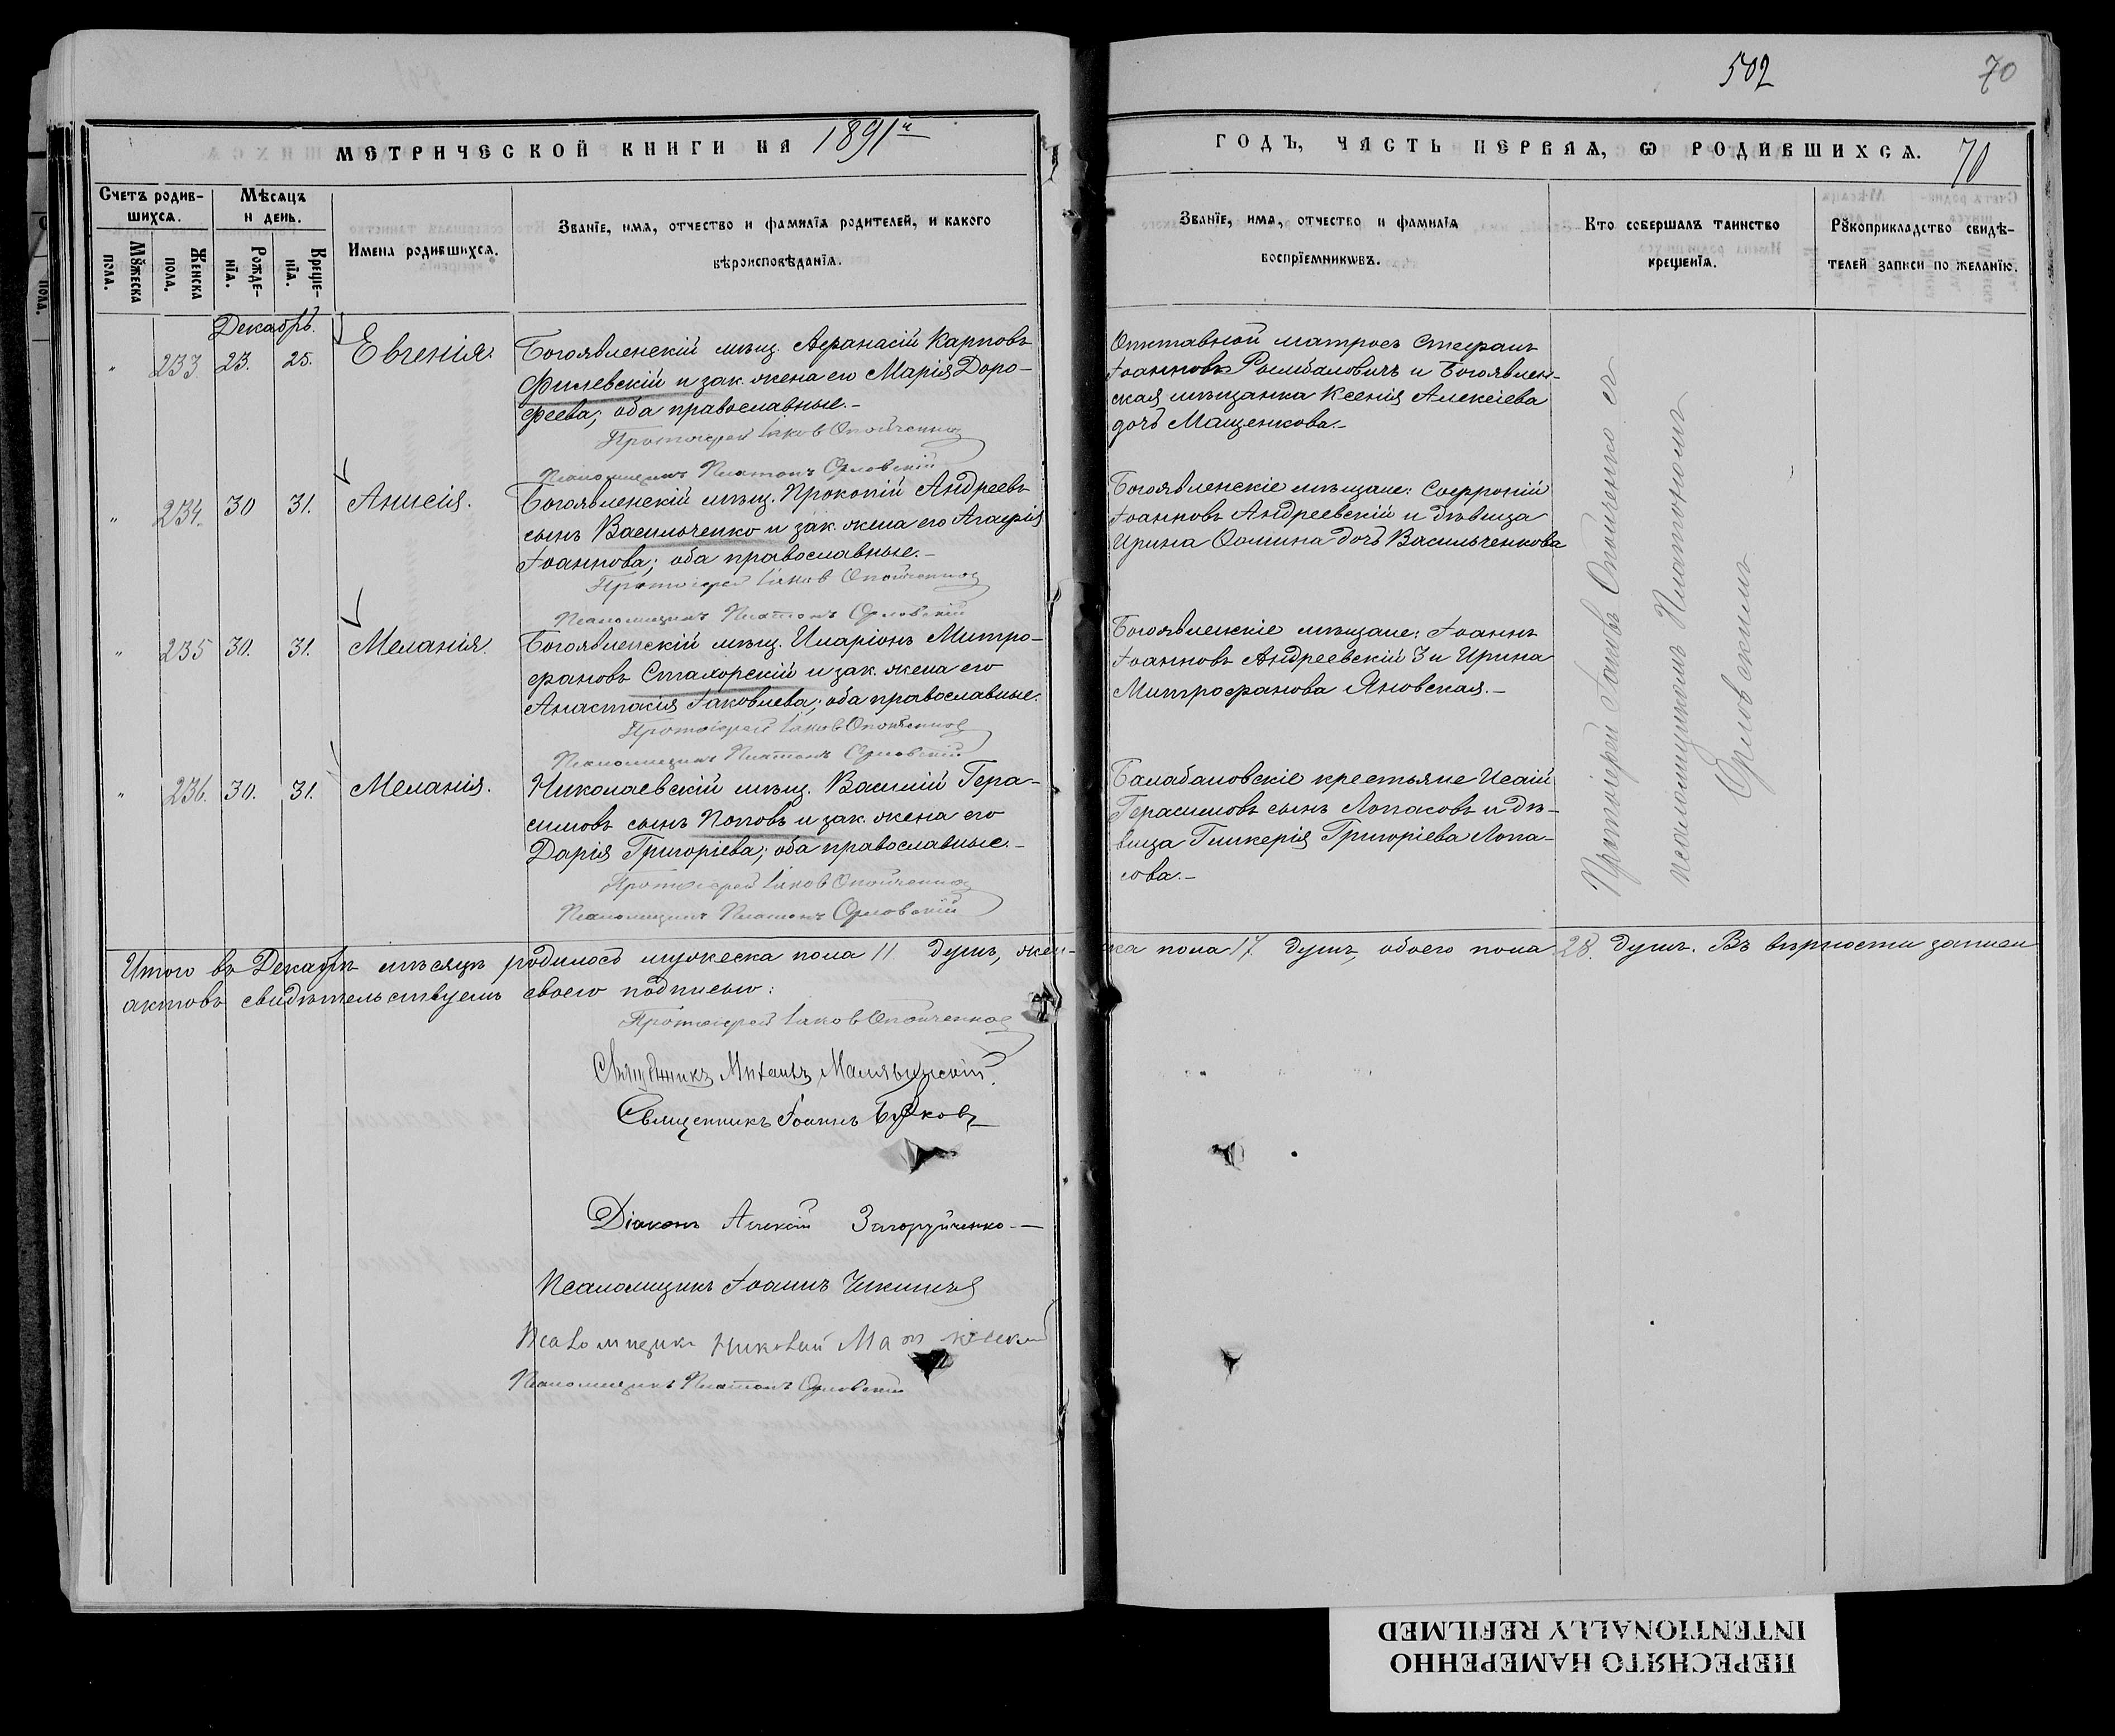 502
70
МЕТРИЧЕСКОЙ КНИГИ НА 1891й
ГОДЪ, ЧАСТЬ ПЕРВАЯ, Ѡ РОДИВШИХСЯ.
70
Счетъ родив-
шихся.
Мꙋжеска пола.
Женска пола.
Мѣсяцъ
и день.
Рожде-
нїя.
Креще-
нїя.
Имена родившихся.
Званїе, имя, отчество и фамилїя родителей, и какого
вѣроисповѣданїя.
Званїе, имя, отчество и фамилїя
воспрїемникѡвъ.
Кто совершалъ таинство
крещенїя.
Рꙋкоприкладство свидѣ-
телей записи по желанїю.
Декабрь.
" 233. 23. 25. Евгенія.
Богоявленскій мѣщ. Афанасій Карповъ
Филевскій и зак. жена его Марія Доро-
феева; оба православные.-
Протоіерей Іаков Опойченко
Псаломщикъ Платонъ Орловскій
Отставной матросъ Стефанъ
Іоанновъ и Богоявлен-
ская мѣщанка Ксенія Алексіева
дочь Мащенкова.-
" 234. 30 31. Анисія.
Богоявленскій мѣщ. Прокопій Андреевъ
сынъ Васильченко и зак. жена его Агафія
Іоаннова; оба православные.-
Протоіерей Іаков Опойченко
Псаломщикъ Платонъ Орловскій
Богоявленскіе мѣщане: Софроній
Іоанновъ Андреевскій и дѣвица
Ирина Ѳомина дочь Васильченкова
" 235 30. 31. Меланія.
Богоявленскій мѣщ. Иларіонъ Митро-
фановъ Стахорскій и зак. жена его
Анастасія Іаковлева; оба православные.
Протоіерей Іаков Опойченко
Псаломщикъ Платонъ Орловскій
Богоявленскіе мѣщане: Іоаннъ
Іоанновъ Андреевскій 3 и Ирина
Митрофанова Яновская.-
" 236. 30. 31. Меланія.
Николаевскій мѣщ. Василій Гера-
симовъ сынъ Поповъ и зак. жена его
Дарія Григоріева; оба православные.-
Протоіерей Іаков Опойченко
Псаломщикъ Платонъ Орловскій
Балабановскіе крестьяне Исаій
Герасимовъ сынъ Лопасовъ и дѣ-
вица Гликерія Григоріева Лопа-
сова.-
Протоіерей Іаковъ Опойченко съ
псаломщикомъ Платономъ
Орловскимъ
Итого въ Декабрѣ мѣсяцѣ родилось мужеска пола 11 душъ, жен-ска пола 17 душъ, обоего пола 28. душъ. Въ вѣрности записи
актовъ свидѣтельствуемъ своею подписью:
Протоіерей Іаков Опойченко
Священникъ Михаилъ
Священникъ Іоаннъ
Діаконъ Алексій Загоруйченко.-
Псаломщикъ Іоаннъ
Псаломщикъ Николай
Псаломщикъ Платонъ Орловскій
ПЕРЕСНЯТО НАМЕРЕННО
INTENTIONALLY REFILMED